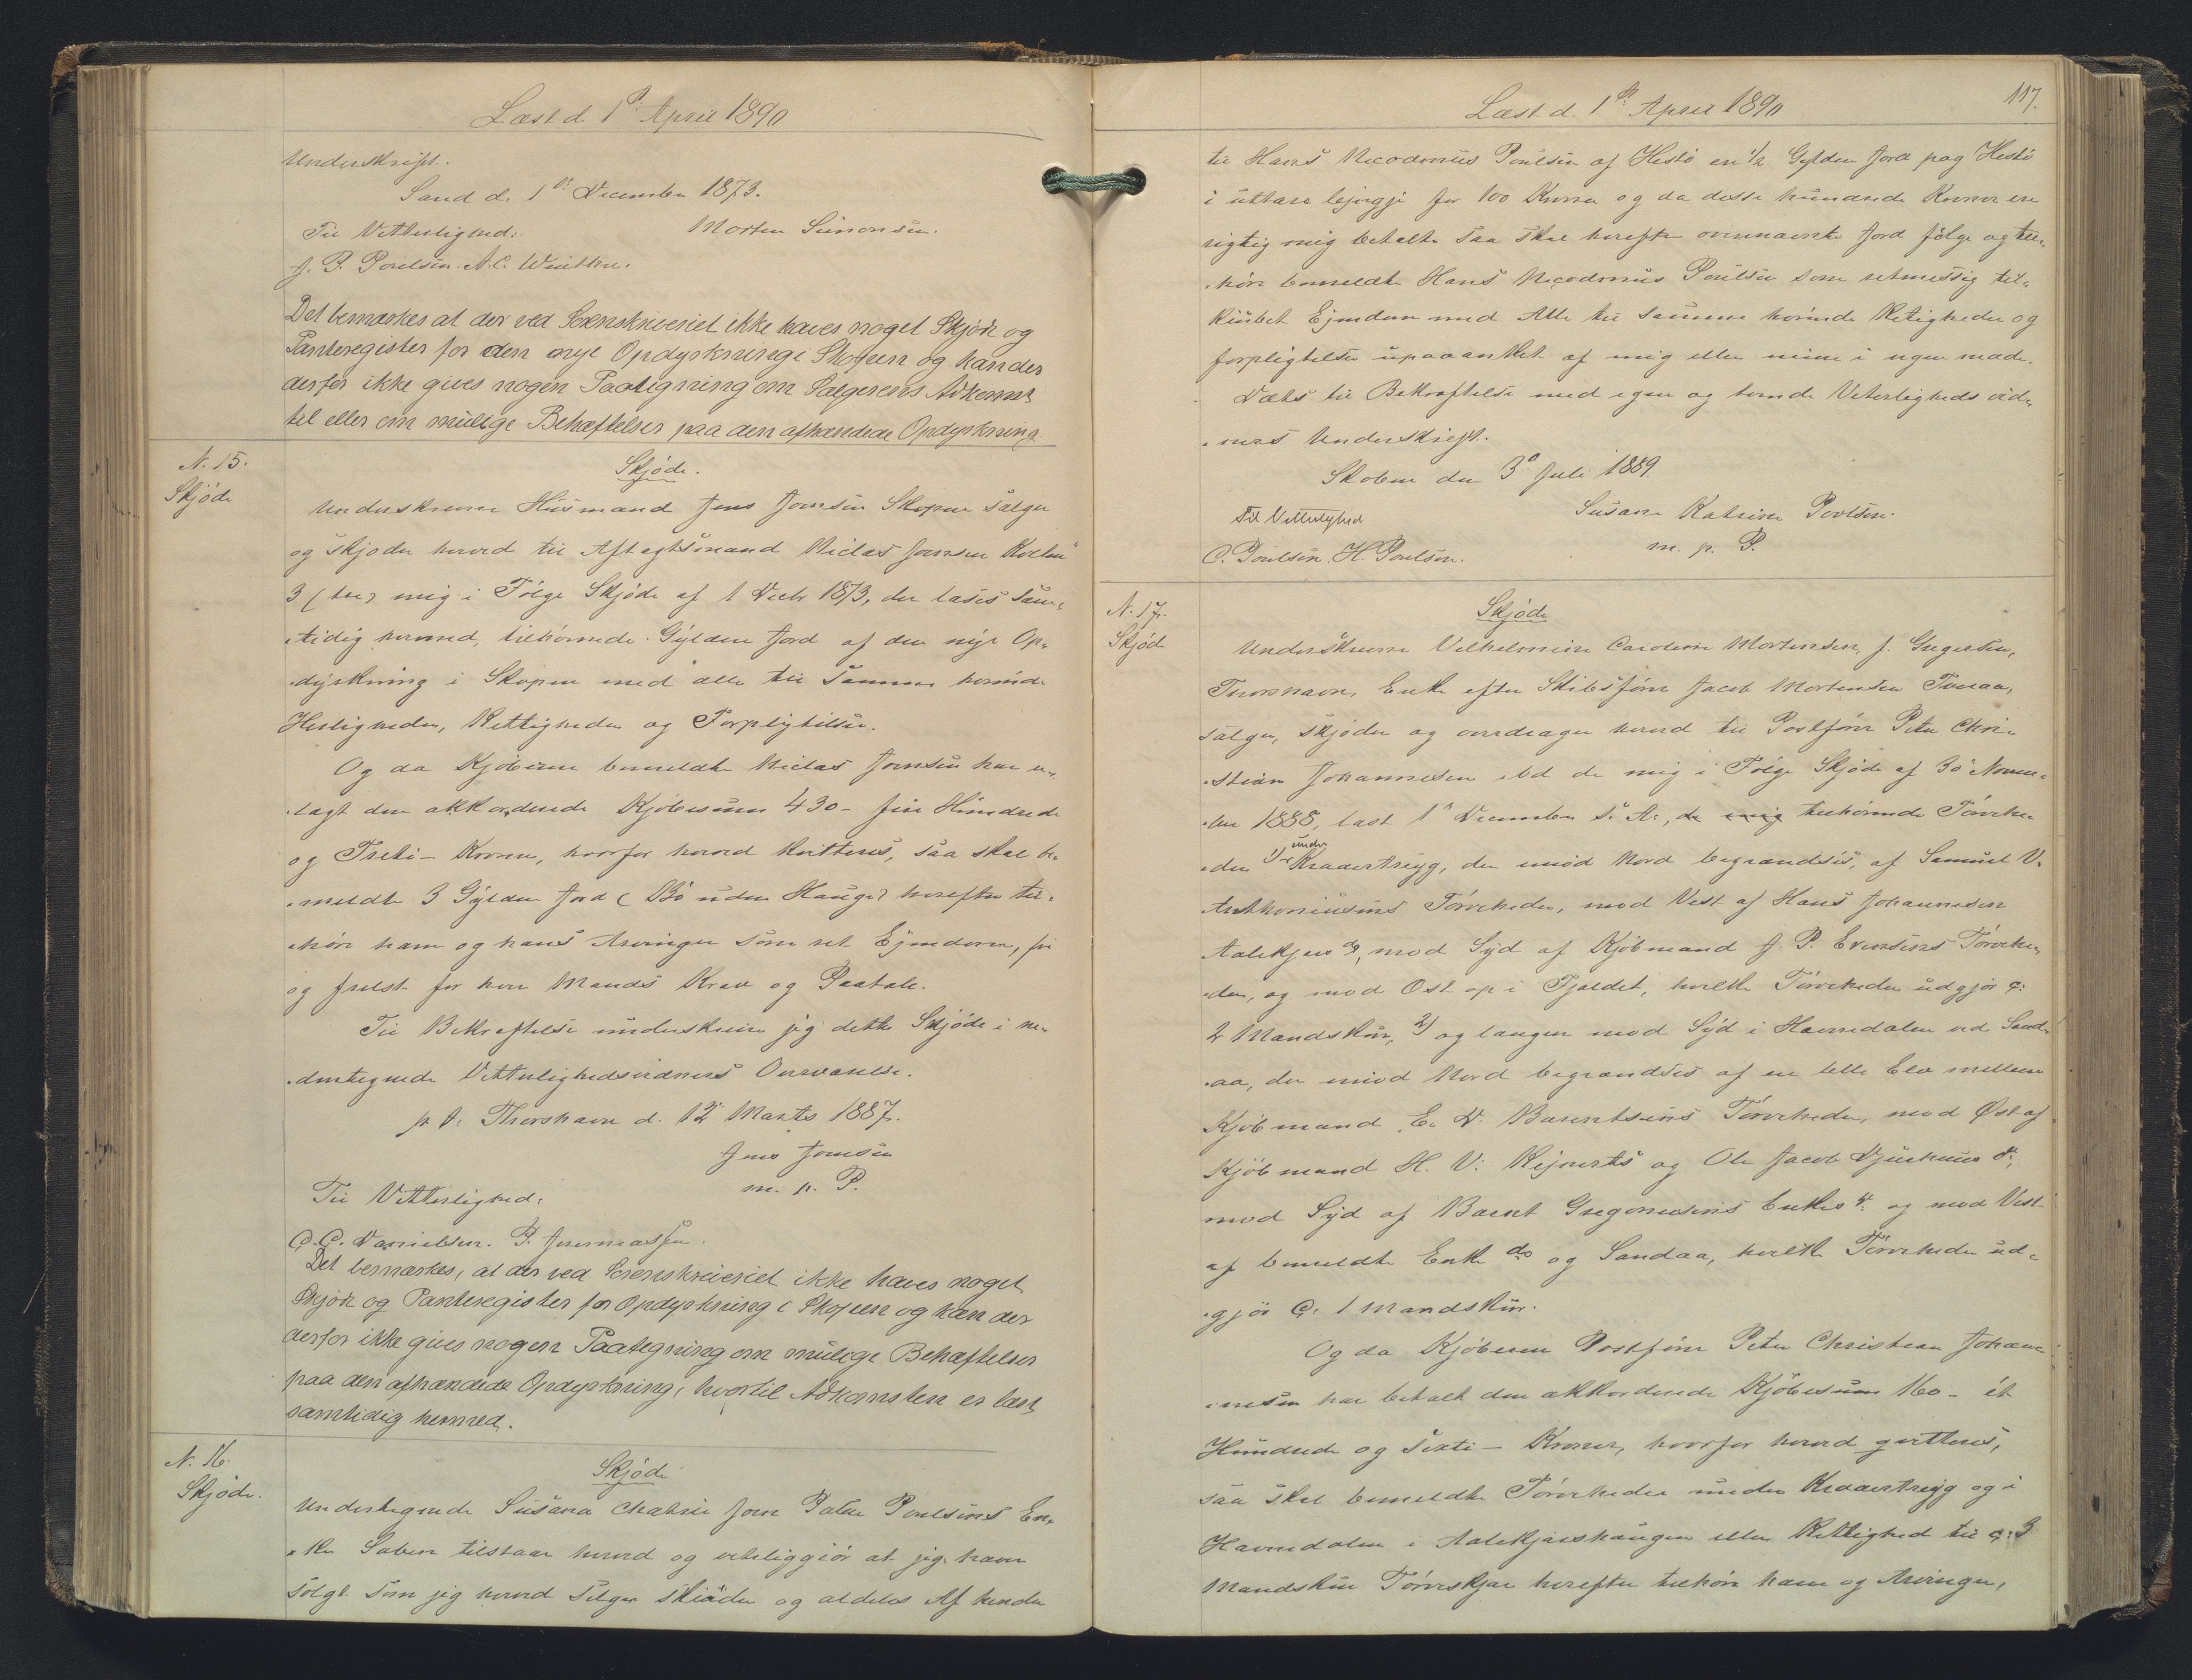 Læst d. 1st April 1890
Underskrift.
Sand d. 1st December 1873.
Til Vitterlighed: Morten Simonsen.
J. P. Poulsen. N. C. Winther.
Det bemærkes at der ved Sorenskriveriet ikke haves noget Skjøde og
Panteregister for den nye Opdyrkning i Skopen og kan der
derfor ikke gives nogen Paategning om Sælgerens Adkomst
til eller om mulige Behæftelser paa den afhændede Opdyrkning.
N. 15.
Skjöde
Skjöde.
Underskrevne Husmand Jens Joensen Skopen sælger
og skjøder herved til Aftægtsmand Niclas Joensen
3 (tre) mig i Følge Skjöde af 1 Decbr 1873, der læses sam-
tidig hermed, tilhørende Gylden Jord af den nye Op-
dyrkning i Skopen med alle til samme hørende
Herligheder, Rettigheder og Forpligtelser.
Og da Kjøberen bemeldte Niclas Joensen har er-
lagt den akkorderede Kjøbesum 430 - fire Hundrede
og Tretti - Kroner, hvorfor herved kvitteres, saa skal be-
meldte 3 Gylden Jord (Bö uden Hauge) herefter til-
høre ham og hans Arvinger som ret Ejendom, fri
og frelst for hver Mands Krav og Paatale.
Til Bekræftelse underskriver jeg dette Skjöde i ne-
dentegnede Vitterlighedsvidners Overværelse.
p. t. Thorshavn d. 12 Marts 1887.
Jens Joensen
m. p. P.
Til Vitterlighed:
C. C. Danielsen. P. Jeremiassen.
Det bemærkes, at der ved Sorenskriveriet ikke haves noget
Skjøde og Panteregister for Opdyrkning i Skopen og kan der
derfor ikke gives nogen Paategning om mulige Behæftelser
paa den afhændede Opdyrkning, hvortil Adkomsten er læst
samtidig hermed.
N. 16.
Skjöde.
Skjöde
Undertegnede Susana Chatrie Joen Peter Poulsens En-
ke tilstaar herved og vitterliggiör at jeg haver
solgt som jeg herved selger skiøder og aldeles Af hender
Læst d. 1st April 1890
117.
til Hans Nicodemus Poulsen af Hestö en 1/2 Gylden Jord paa Hestö
i uttare for 100 Kroner og da desse hundrede Kroner ere
rigtig mig betalte saa skal herefter ovennævnte Jord følge og til-
höre bemeldte Hans Nicodemus Poulsen som retmessig til-
kiöbt Ejendom med Alle til samme hørende Retigheder og
forpligtelser upaaanket af mig eller mine i ingen made.
Dets til Bekræftelse med egen og tvende Viterligheds vid-
ners Underskrift.
Skoben den 3die Juli 1889.
Til Vitterlighed Susane Katrine Poulsen.
C. Poulsen. H. Poulsen. m. p. P.
N. 17.
Skjöd
Skjöde
Underskrevne Vilhelmine Caroline Mortensen, f. Gregersen,
Thorshavn, Enke efter Skibsfører Jacob Mortensen Tveraa,
sælger, skjøder og overdrager herved til Postfører Peter Chri-
stian Johannesen ibd de mig i Følge Skjöde af 30 Novem-
ber 1888, læst 1 December s. A., de mig tilhørende Törvehe-
der 1) under Kraaertrygg, der imod Nord begrændses, af Samuel V.
Anthoniusens Törveheder, mod Vest af Hans Johannesen
Aalekjær do, mod Syd af Kjöbmand J. P. Evensens Törvehe-
der, og mod Öst op i Fjeldet, hvilke Törveheder udgjør c:
2 Mandskur, 2) og længer mod Syd i Havnedalen ved Sand-
aa, der imod Nord begrændses af en lille Elv mellem
Kjöbmand E. D. Bærentsens Törveheder, mod Øst af
Kjöbmand H. V. og Ole Jacob Djurhuus do,
mod Syd af Bærent Gregoriusens Enkes do. og mod Vest
af bemeldte Enke do og Sandaa, hvilke Törveheder ud-
gjör c. 1 Mandskur.
Og da Kjøberen Postfører Peter Christian Johan-
nesen har betalt den akkorderede Kjøbesum 160 - ét
Hundrede og Sexti - Kroner, hvorfor herved qvitteres,
saa skal bemeldte Törveheder under Kraaertrygg og i
Havnedalen i Aalekjærshaugen eller Rettighed til c: 3
Mandskur Törveskjær herefter tilhøre ham og Arvinger,